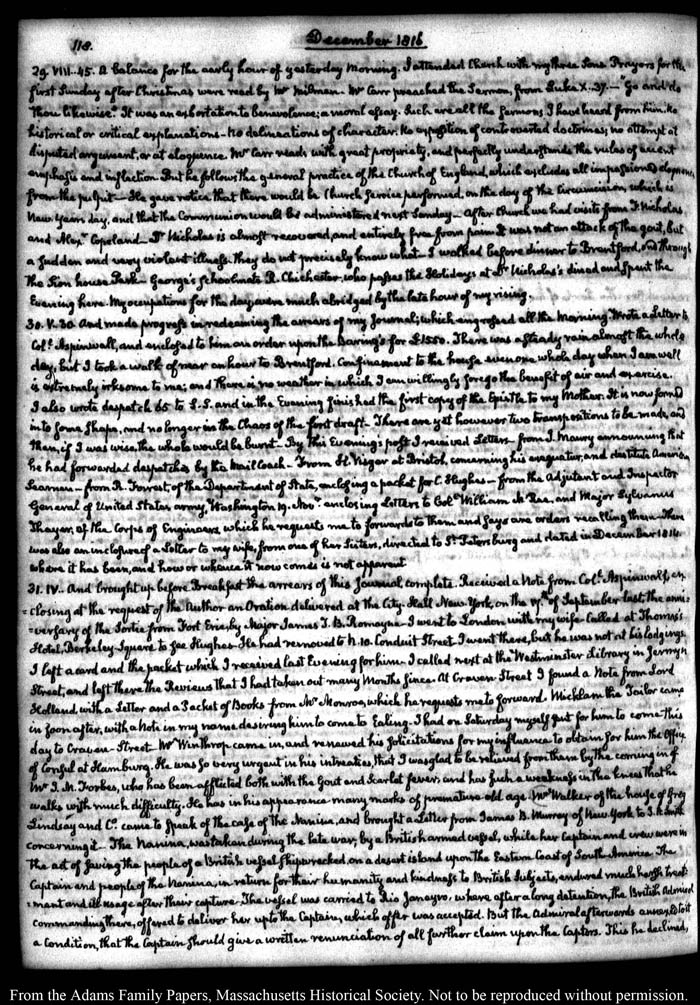 118.
December 1816
29. VIII..45. A balance for the early hour of yesterday Morning. I attended Church with my three Sons. Prayers for the
first Sunday after Christmas were read by Mr Milman. Mr Carr preached the Sermon, from Luke X..37.— "Go and do
thou likewise". It was an exhortation to benevolence; a moral essay. Such are all the Sermons I have heard from him. No
historical or critical explanations— No delineations of character. No exposition of controverted doctrines; no attempt at
disputed argument, or at eloquence. Mr Carr reads with great propriety, and perfectly understands the rules of accent
emphasis and inflection. But he follows the general practice of the Church of England, which excludes all impassioned eloquence
from the pulpit— He gave notice that there would be Church Service performed, on the day of the Circumcision, which is
New Years day, and that the Communion would be administered next Sunday— After Church we had visits from F. Nicholas,
and Alexr. Copeland— Dr Nicholas is almost recovered, and entirely free from pain. It was not an attack of the gout, but
a sudden and very violent illness. they do not precisely know what— I walked before dinner to Brentford, and through
the Sion house Park— George's Schoolmate R. Chichester who passes the Holidays at Dr Nicholas's dined and spent the
Evening here. My occupations for the day were much abridged by the late hour of my rising.
30. V..30. And made progress in redeeming the arrears of my Journal; which engrossed all the Morning. Wrote a Letter to
Coll. Aspinwall, and enclosed to him an order upon the Baring's for £1550. There was a steady rain almost the whole
day, but I took a walk of near an hour to Brentford. Confinement to the house even one whole day when I am well
is extremely irksome to me; and there is no weather in which I am willingly forego the benefit of air and exercise.
I also wrote despatch 65 to S.S. and in the Evening finished the first copy of the Epistle to my Mother. It is now formed
into some shape, and no longer in the Chaos of the first draft— There are yet however two transpositions to be made, and
then, if I was wise, the whole would be burnt— By this Evening's post I received Letters— from J. Maury announcing that
he had forwarded despatches by the Mail Coach— From H. Visger at Bristol, concerning his and destitute American
Seamen— from R. Forrest, of the Department of State, enclosing a packet for C. Hughes— from the Adjutant and Inspector
General of United States army, Washington 19. Novr. enclosing Letters to Coll. William Mc Rae, and Major Sylvanus
Thayer, of the Corps of Engineers, which he requests me to forward to them and says are orders recalling them. There
was also an inclosure of a Letter to my wife, from one of her Sisters, directed to St. Petersburg and dated in December 1814.
where it has been, and how or whence it now comes is not apparent
31. IV.. And brought up before Breakfast the arrears of this Journal complete. Received a Note from Coll. Aspinwall, en-
=closing at the request of the Author an Oration delivered at the City Hall New York, on the 17th. of September last, the anni-
=versary of the Sortie from Fort Erie, by Major James T. B. Romayne. I went to London with my wife. Called at Thomas's
Hotel, Berkeley Square to see Hughes. He had removed to N. 10. Conduit Street. I went there, but he was not at his lodgings.
I left a card and the packet which I received last Evening for him. I called next at the Westminster Library in Jermyn
Street, and left there the Reviews that I had taken out many Months since. At Craven Street I found a Note from Lord
Holland, with a Letter and a Packet of Books from Mr Monroe, which he requests me to forward. Wicklam the Tailor came
in soon after, with a Note in my name desiring him to come to Ealing. I had on Saturday myself put for him to come this
day to Craven-Street. Mr Winthrop came in, and renewed his solicitations for my influence to obtain for him the Office
of Consul at Hamburg. He was so very urgent in his intreaties, that I was glad to be relieved from them by the coming in of
Mr J. M. Forbes, who has been afflicted both with the Gout and Scarlet fever; and has such a weakness in the knees that he
walks with much difficulty. He has in his appearance many marks of premature old age. Mr Walker of the house of Grey
Lindsay and Co. came to speak of the case of the Nanina, and brought a Letter from James B. Murray of New York to J. A. Smith
concerning it— The Nanina, was taken during the late war, by a British armed vessel, while her Captain and crew were in
the act of saving the people of a British vessel shipwrecked on a desert island upon the Eastern Coast of South America. The
Captain and people of the Nanina, in return for their humanity and kindness to British Subjects, endured much harsh treat-
=ment and ill usage after their capture. The vessel was carried to Rio Janeyro. where after a long detention, the British Admiral
commanding there, offered to deliver her up to the Captain, which offer was accepted. But the Admiral afterwards annexed to it
a condition, that the Captain should give a written renunciation of all further claim upon the Captors. This he declined,
From the Adams Family Papers, Massachusetts Historical Society. Not to be reproduced without permission